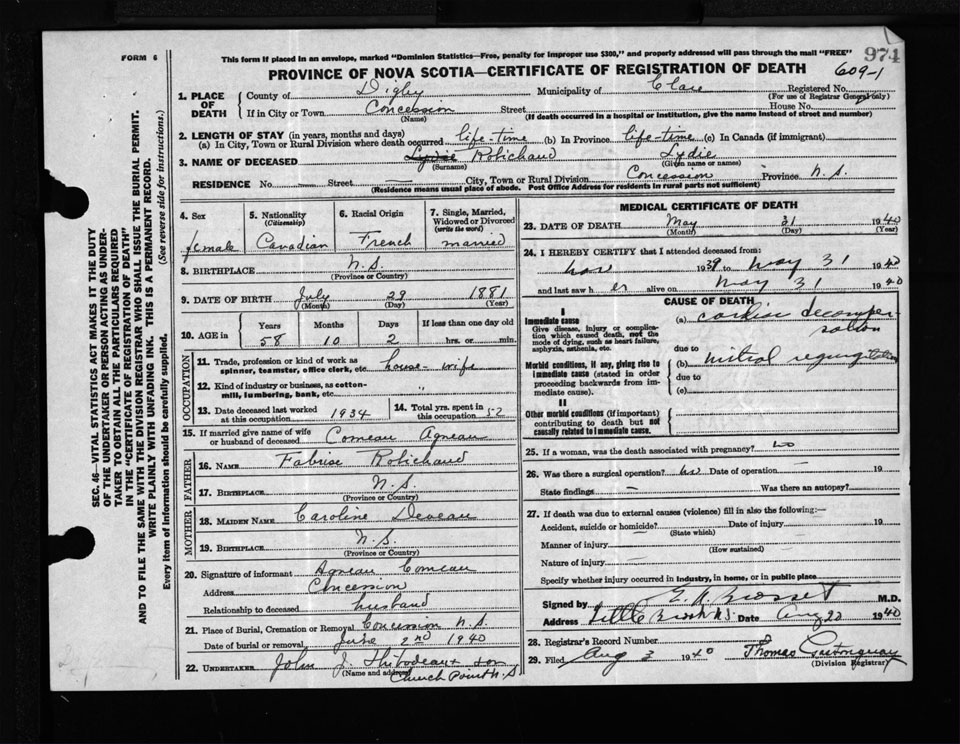 FORM 6
This form if placed in an envelope, marked "Dominion Statistics—Free, penalty for improper use $300," and properly addressed will pass through the mail "FREE"
974
PROVINCE OF NOVA SCOTIA—CERTIFICATE OF REGISTRATION OF DEATH
609-1
1. PLACE OF DEATH
County of Digby Municipality of Clare Registered No.
(For use of Registrar General only)
If in City or Town Concession Street House No.
(Name) (If death occurred in a hospital or institution, give the name instead of street and number)
2. LENGTH OF STAY (in years, months and days)
(a) In City, Town or Rural Division where death occurred life-time (b) In Province life-time (c) In Canada (if immigrant)
3. NAME OF DECEASED Lydie Robichaud Lydie
(Surname) (Given name or names)
RESIDENCE No. — Street — City, Town or Rural Division Concession Province N.S.
(Residence means usual place of abode. Post Office Address for residents in rural parts not sufficient)
4. Sex female
5. Nationality (Citizenship) Canadian
6. Racial Origin French
7. Single, Married, Widowed or Divorced (write the word) married
8. BIRTHPLACE N.S.
(Province or Country)
9. DATE OF BIRTH July 29 1881
(Month) (Day) (Year)
10. AGE in Years Months Days If less than one day old
58 10 2 hrs. or min.
OCCUPATION
11. Trade, profession or kind of work as spinner, teamster, office clerk, etc. house-wife
12. Kind of industry or business, as cotton-mill, lumbering, bank, etc. "
13. Date deceased last worked at this occupation 1934
14. Total yrs. spent in this occupation 52
15. If married give name of wife or husband of deceased Comeau Agneau
FATHER
16. NAME Fabrise Robichaud
17. BIRTHPLACE N.S.
(Province or Country)
MOTHER
18. MAIDEN NAME Caroline Deveau
19. BIRTHPLACE N.S.
(Province or Country)
20. Signature of informant Agneau Comeau
Address Concession
Relationship to deceased husband
21. Place of Burial, Cremation or Removal Concession N.S.
Date of burial or removal June 2nd 1940
22. UNDERTAKER John J. Thibodeau & son
(Name and address) Church Point N.S
MEDICAL CERTIFICATE OF DEATH
23. DATE OF DEATH May 31 1940
(Month) (Day) (Year)
24. I HEREBY CERTIFY that I attended deceased from:
Nov 1939 to May 31 1940
and last saw h er alive on May 31 1940
CAUSE OF DEATH
I
Immediate cause
Give disease, injury or complication which caused death, not the mode of dying, such as heart failure, asphyxia, asthenia, etc.
(a) cardiac decompensation
due to
Morbid conditions, if any, giving rise to immediate cause (stated in order proceeding backwards from immediate cause).
(b) mitral regurgitation
due to
(c)
II
Other morbid conditions (if important) contributing to death but not causally related to immediate cause.
25. If a woman, was the death associated with pregnancy? no
26. Was there a surgical operation? no Date of operation — 19
State findings — Was there an autopsy?
27. If death was due to external causes (violence) fill in also the following:—
Accident, suicide or homicide? Date of injury 19
(State which)
Manner of injury
(How sustained)
Nature of injury
Specify whether injury occurred in industry, in home, or in public place
Signed by M.D.
Address Little Brook N.S. Date Aug 20 1940
28. Registrar's Record Number
29. Filed Aug 3 1940 Thomas Castonguay
(Division Registrar)
SEC. 46—VITAL STATISTICS ACT MAKES IT THE DUTY
OF THE UNDERTAKER OR PERSON ACTING AS UNDER-
TAKER TO OBTAIN ALL THE PARTICULARS REQUIRED
IN THE "CERTIFICATE OF REGISTRATION OF DEATH"
AND TO FILE THE SAME WITH THE DIVISION REGISTRAR WHO SHALL ISSUE THE BURIAL PERMIT.
WRITE PLAINLY WITH UNFADING INK. THIS IS A PERMANENT RECORD.
Every item of information should be carefully supplied. (See reverse side for instructions.)